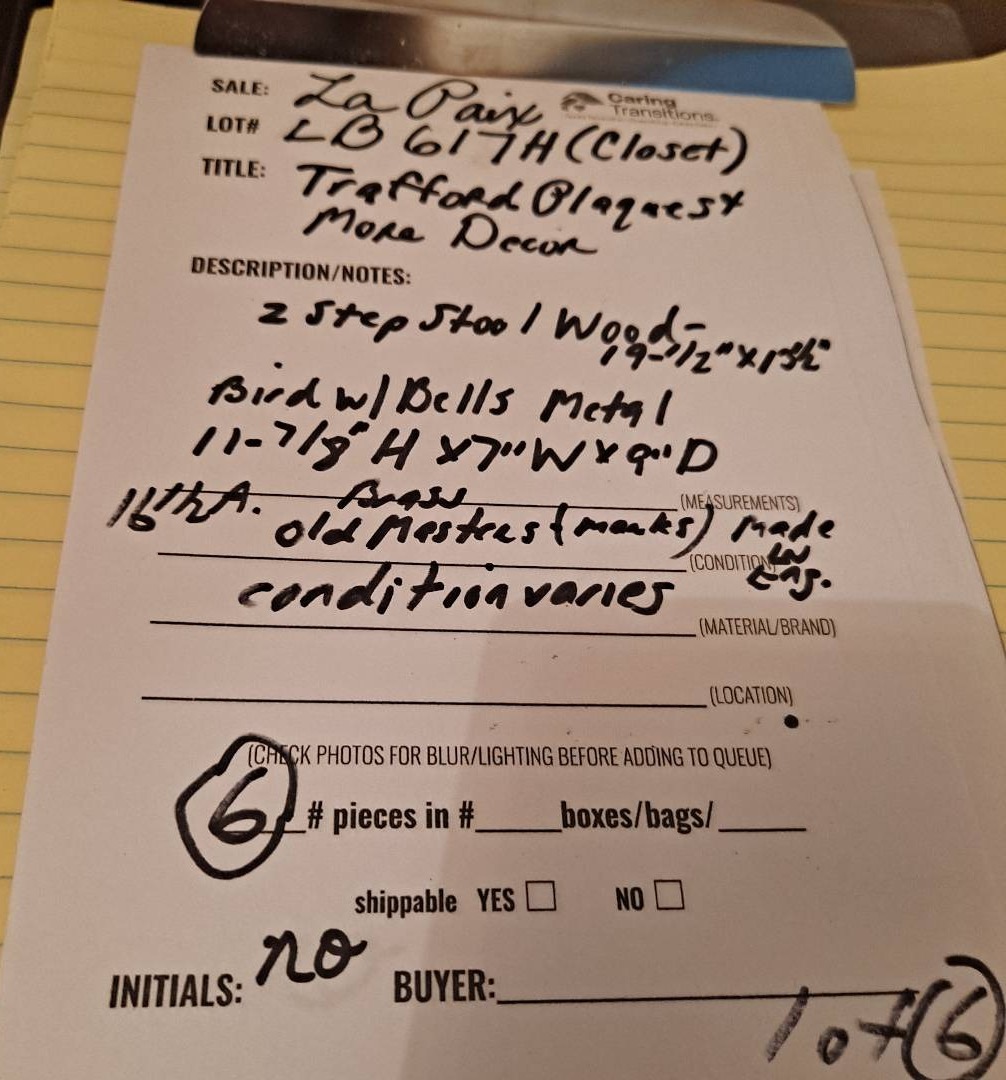 SALE: La Paix Caring Transitions
LOT# LB 617H (Closet)
TITLE: Trafford Plaques +
More Decor
DESCRIPTION/NOTES:
2 Step Stool Wood-
19-1/2" X
Bird w/ Bells Metal
11-7/8" H X 7" W X 9" D
(MEASUREMENTS)
Brass
Old Masters (marks) Made
in
Eng.
(CONDITION)
condition varies
(MATERIAL/BRAND)
(LOCATION)
(CHECK PHOTOS FOR BLUR/LIGHTING BEFORE ADDING TO QUEUE)
6 # pieces in #____boxes/bags/____
shippable YES ☐ NO ☐
INITIALS: no BUYER:
1 of 6